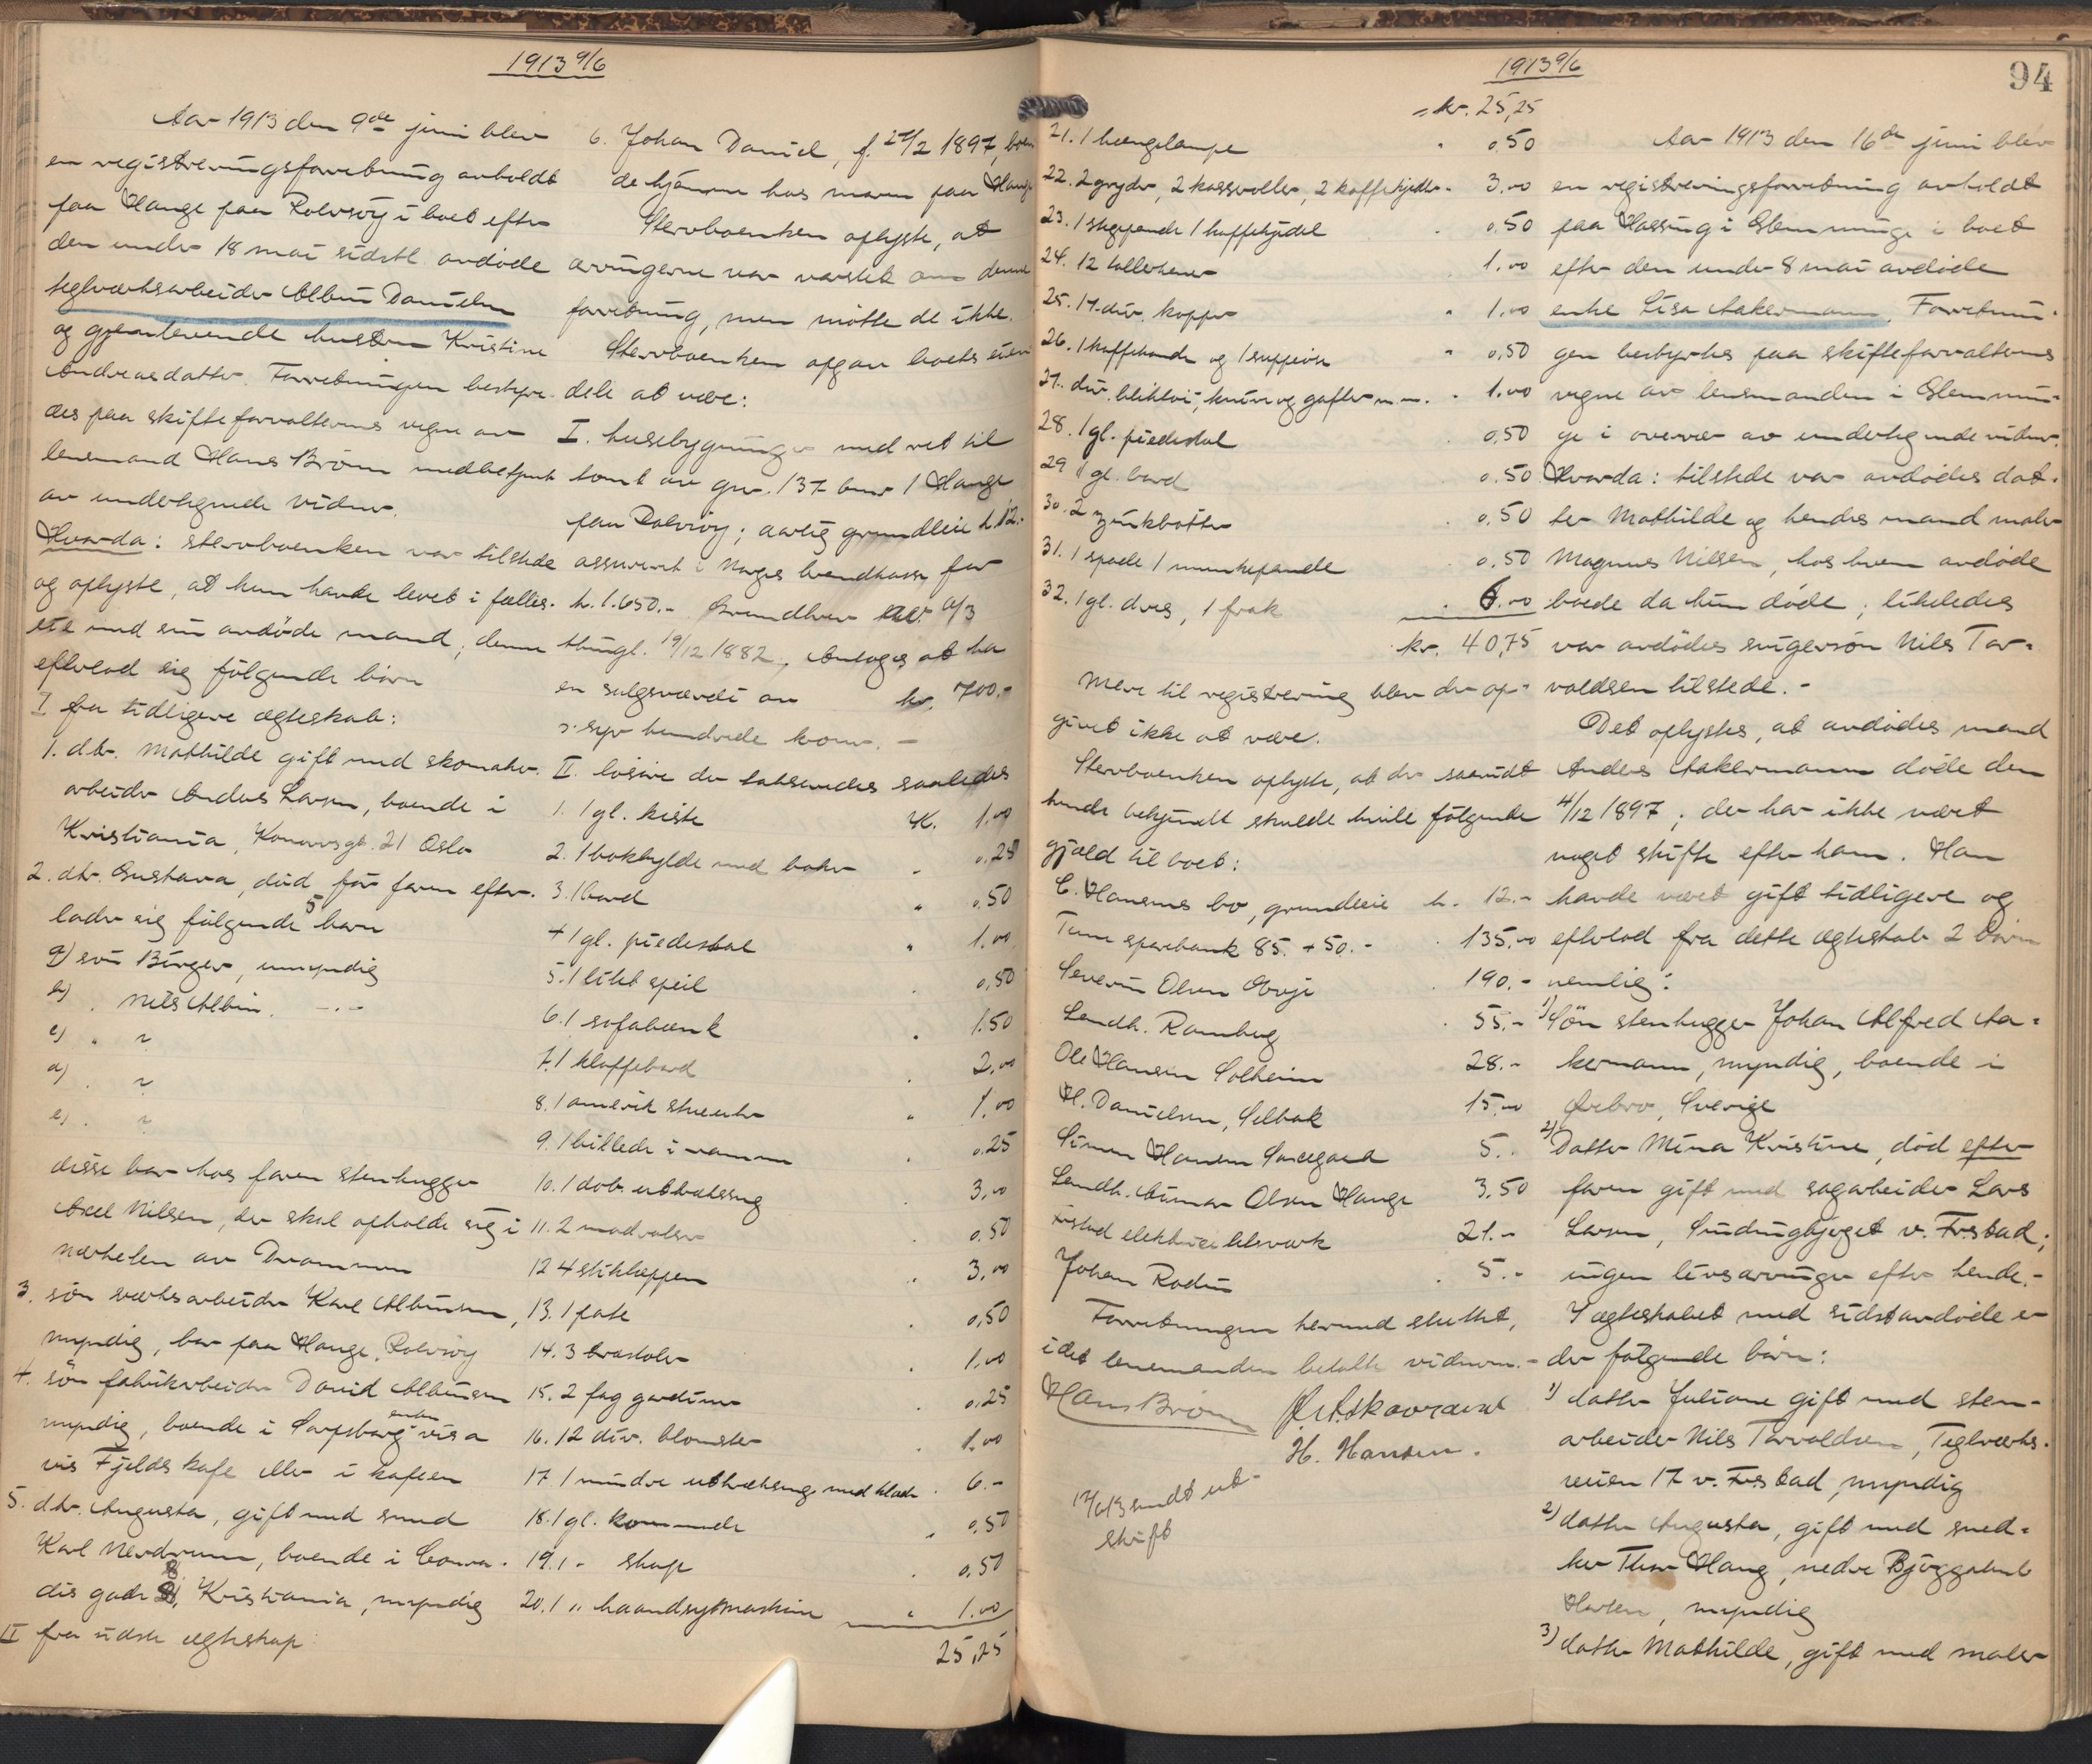 1913 9/6
Aar 1913 den 9de juni blev
en registreringsforretning avholdt
paa Hauge paa Rolvsöy i boet efter
den under 18 mai sidstl. avdöde
teglverksarbeider Albin Danielsen
og gjenlevende hustru Kristine
Andreasdatter. Forretningen bestyre-
des paa skifteforvalterens vegne av
lensmand Hans Brömn med
av undertegnede vidner.
Hvorda: stervboenken var tilstede
og oplyste, at hun havde levet i fælles-
eie med sin avdöde mand; denne
efterlod sig fölgende börn
I fra tidligere ægteskab:
1. dtr. Mathilde gift med skomaker-
arbeider Anders Larsen, boende i
Kristiania, gt. 21 Oslo
2. dtr. Gustava, död för faren efter-
lader sig fölgende 5 barn
a) sön Birger, umyndig
b) " Nils Albin. -"-
c) " ?
d) " ?
e) " ?
disse bor hos faren stenhugger
Axel Nilsen, der skal opholde sig i
nærheten av Drammen
3. sön verksarbeider Karl Albinsen,
myndig, bor paa Hauge, Rolvsöy
4. sön fabrikarbeider David Albinsen
myndig, boende i Sarpsborg enten vis a
vis Fjelds kafe eller i kafeen
5. dtr. Augusta, gift med smed
Karl Nerdrum, boende i
gade 8, Kristiania, myndig
II fra sidste ægteskap
6. Johan Daniel, f. 27/2 1897, boen
de hjemme hos moren paa Hauge
Stervboenken oplyste, at
arvingerne var varslet om denne
forretning, men mötte de ikke.
Stervboenken opgav boets eien
dele at være:
I. husebygninger med ret til
tomt av gnr. 137 bnr 1 Hauge
paa Rolvsöy; aarlig grundleie kr. 12.-
assureret i Norges brandkasse for
kr. 1.650.- Grundbrev
thingl. 19/12 1882. Antoges at ha
en salgsværdi av kr. 700.-
syv hundrede kroner. -
II. lösöre der taxeredes saaledes
1. 1 gl. kiste K. 1.00
2. 1 bokhylde med böker " 0.25
3. 1 bord " 0.50
4 1 gl. piedestal " 1.00
5. 1 litet speil " 0,50
6. 1 sofabænk " 1.50
7. 1 klaffebord " 2,00
8. 1 amerik stueuhr " 1.00
9. 1 billede i ramme " 0.25
10. 1 dob. uttrækseng " 3,00
11. 2 madrasser " 0.50
12 4 stiktæpper " 3,00
13. 1 pute " 0,50
14. 3 træstoler " 1.00
15. 2 fag gardiner " 0.25
16. 12 div. blomster " 1.00
17 1 mindre uttrækseng med klæder " 6.-
18. 1 gl. kommode " 0,50
19. 1 " skap " 0.50
20. 1 " haandsymaskine " 1.00
25,25
1913 9/6
94
kr. 25,25
21. 1 hængelampe " 0.50
22. 2 gryder, 2 kasseroller, 2 kaffekjedler " 3.00
23. 1 stegepande 1 kaffekjedel " 0.50
24. 12 tallerkener 1.00
25. 17 div. kopper " 1.00
26. 1 kaffekande og 1 " 0,50
27. div. bliktöi, kniver og gafler m. m. " 1.00
28. 1 gl. piedestal 0,50
29 1 gl. bord 0.50
30. 2 zinkbötter 0,50
31. 1 spade 1 munkepande 0.50
32. 1 gl. dres, 1 frak " 6.00
kr. 40,75
Mere til registrering blev der op-
givet ikke at være.
Stervboenken oplyste, at der saavidt
hende bekjendt skulde hvile fölgende
gjæld til boet:
C. Hansens bo, grundleie kr. 12.-
Tune sparebank 85. + 50.- " 135.00
Severin Olsen " 190.-
Landh. Ramberg " 55.-
Ole Hansen Solheim 28.-
H. Danielsen, Selbak 15.00
Simen Hansen 5.-
Landh. Olsen Hauge 3.50
F.stad elektricitetsverk 21.-
Johan Rodin " 5.-
Forretningen hermed sluttet,
idet lensmanden betalte vidnerne.-
Hans Brömn
H. Hansen.
12/6 13 sendt ut-
skrift
Aar 1913 den 16de juni blev
en registreringsforretning avholdt
paa Hassing i Glemminge i boet
efter den under 8 mai avdöde
enke Lisa Aakermann. Forretnin-
gen bestyrtes paa skifteforvalterens
vegne av lensmanden i Glemmin-
ge i overvær av undertegnede vidner.
Hvorda: tilstede var avdödes dat-
ter Mathilde og hendes mand maler
Magnus Nilsen, hos hvem avdöde
boede da hun döde; likeledes
var avdödes svigersön Nils Tor-
valdsen tilstede.-
Det oplystes, at avdödes mand
Anders Aakermann döde den
4/12 1897; der har ikke været
noget skifte efter ham. Han
havde været gift tidligere og
efterlod fra dette ægteskab 2 börn
nemlig:
1) Sön stenhugger Johan Alfred Aa-
kermann, myndig, boende i
Örebro, Sverige
2) Datter Mina Kristine, död efter
faren gift med sagarbeider Lars
Larsen, v. F.stad;
ingen livsarvinger efter hende.-
I ægteskabet med sidstavdöde er
der fölgende börn:
1) datter Juliane gift med sten-
arbeider Nils Torvaldsen, Teglverks-
veien 17 v. F.stad, myndig
2) datter Augusta, gift med sned-
ker Thor Haug, nedre
Horten, myndig
3) datter Mathilde, gift med maler